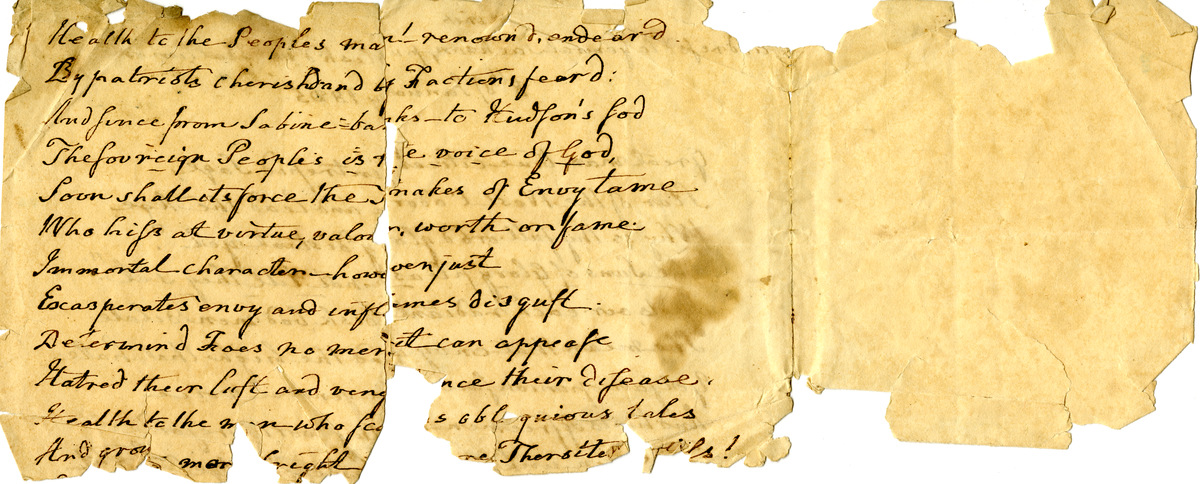 Health to the Peoples man! renown'd, endear'd
By patriots cherish'd and by Factions fear'd:
And since from Sabine-banks to Hudson's sod
The Sov'reign People's is the voice of God,
Soon shall its force the Snakes of Envy tame
Who hiss at virtue, valour, worth or fame.
Immortal character however just
Exasperates envy and inflames disgust.
Determind Foes no merit can appease
Hatred their lust and vengeance their disease.
Health to the man who obliquious tales
And more bright Thersites